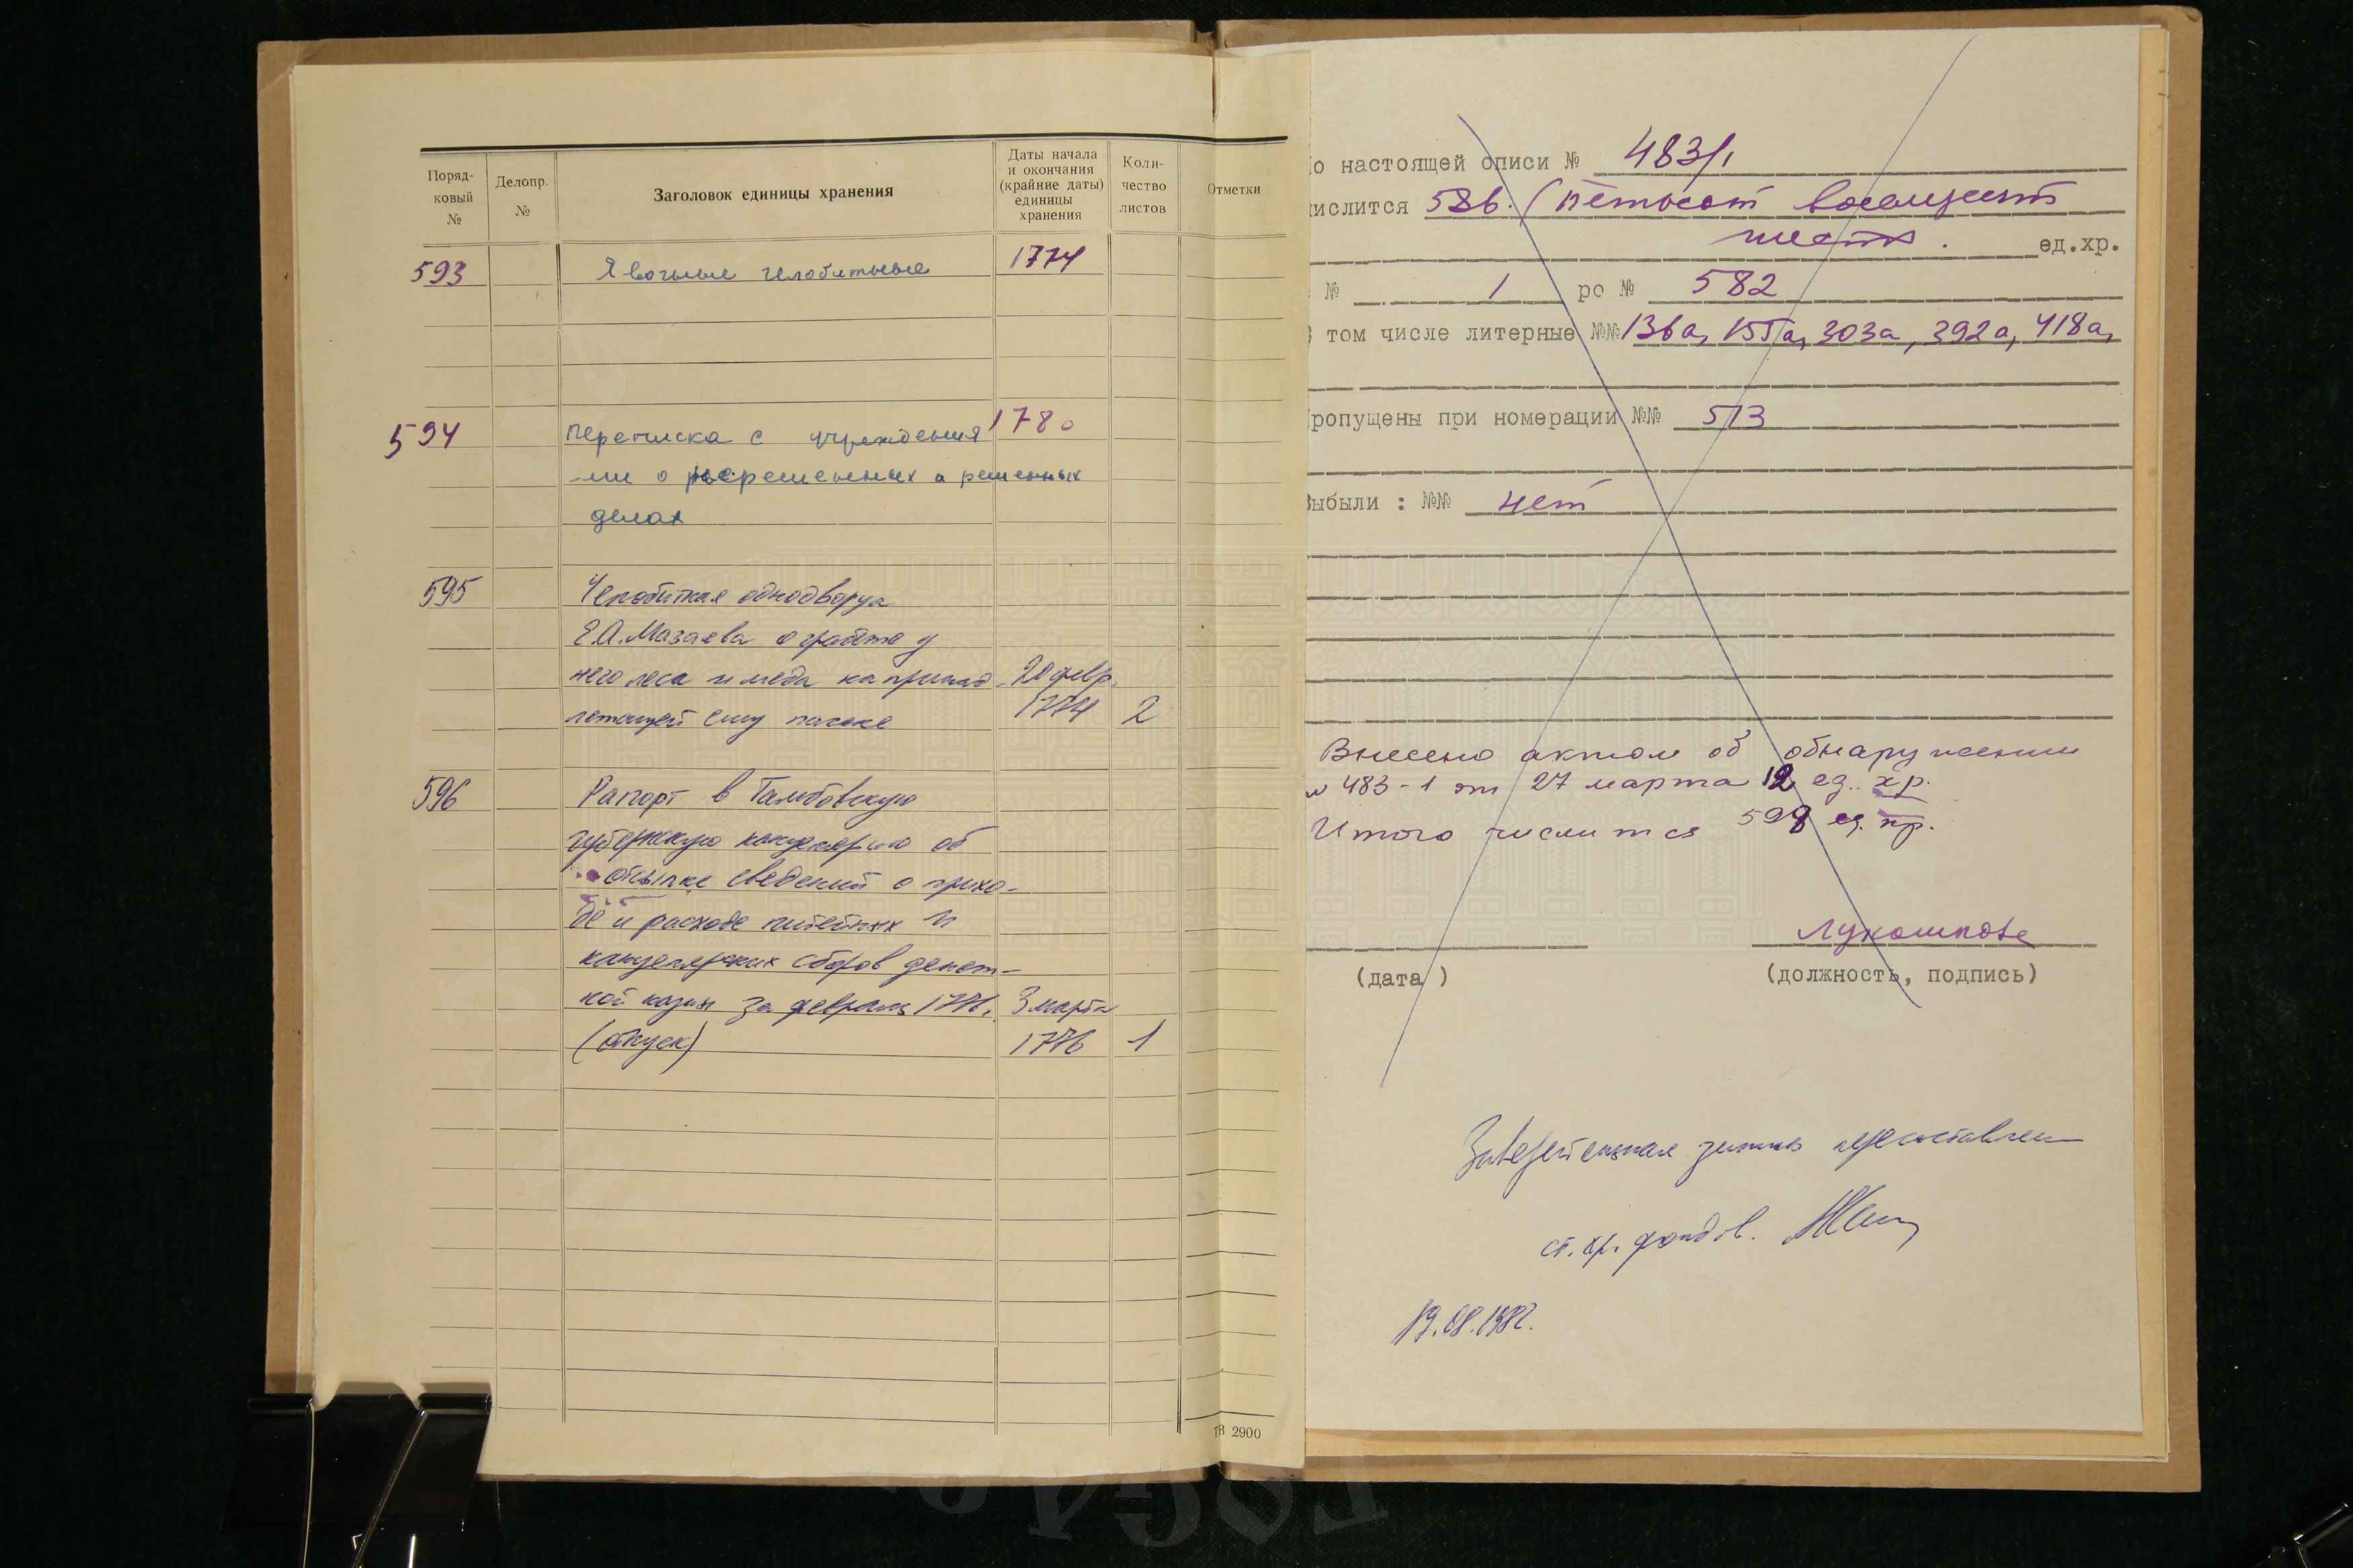 Поряд-
ковый
№
Делопр.
№
Заголовок единицы хранения
Даты начала
и окончания
(крайние даты)
единицы
хранения
Коли-
чество
листов
Отметки
593 Явочные челобитные 1774
594 Переписка с учреждения 1780
-ми о нерешенных и решенных
делах
595 Челобитная однодворца
Е.А. Мазаева о грабеже у
него леса и меда на принад 20 февр.
лежащей ему пасеке 1774 2
596 Рапорт в Тамбовскую
губернскую канцелярию об
отсылке сведений о прихо-
де и расходе питейных и
канцелярских сборов денеж-
ной казны за февраль 1776. 3 марта
(отпуск) 1776 1
ТВ 2900
о настоящей описи № 483/1
ислится 586. (пятьсот восемьдесят
шесть. ед.хр.
№ 1 ро № 582
том числе литерные №№ 136а, 155а, 303а, 392а, 418а,
ропущены при номерации №№ 513
ыбыли : №№ нет
Внесено актом об обнаружении
№ 483-1 от 27 марта 12 ед. хр.
Итого числится 598 ед. хр.
Лукошпове
(дата)
(должность, подпись)
Заверительная запись пересоставлена
ст. хр. фондов.
19.08.1982.
ГОСА